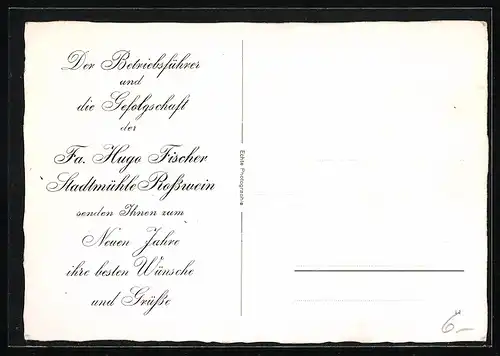 Der Betriebsführer
und
die Gefolgschaft
der
Fa. Hugo Fischer
Stadtmühle Roßwein
senden Ihnen zum
Neuen Jahre
ihre besten Wünsche
und Grüße
Echte Photographie
6,–